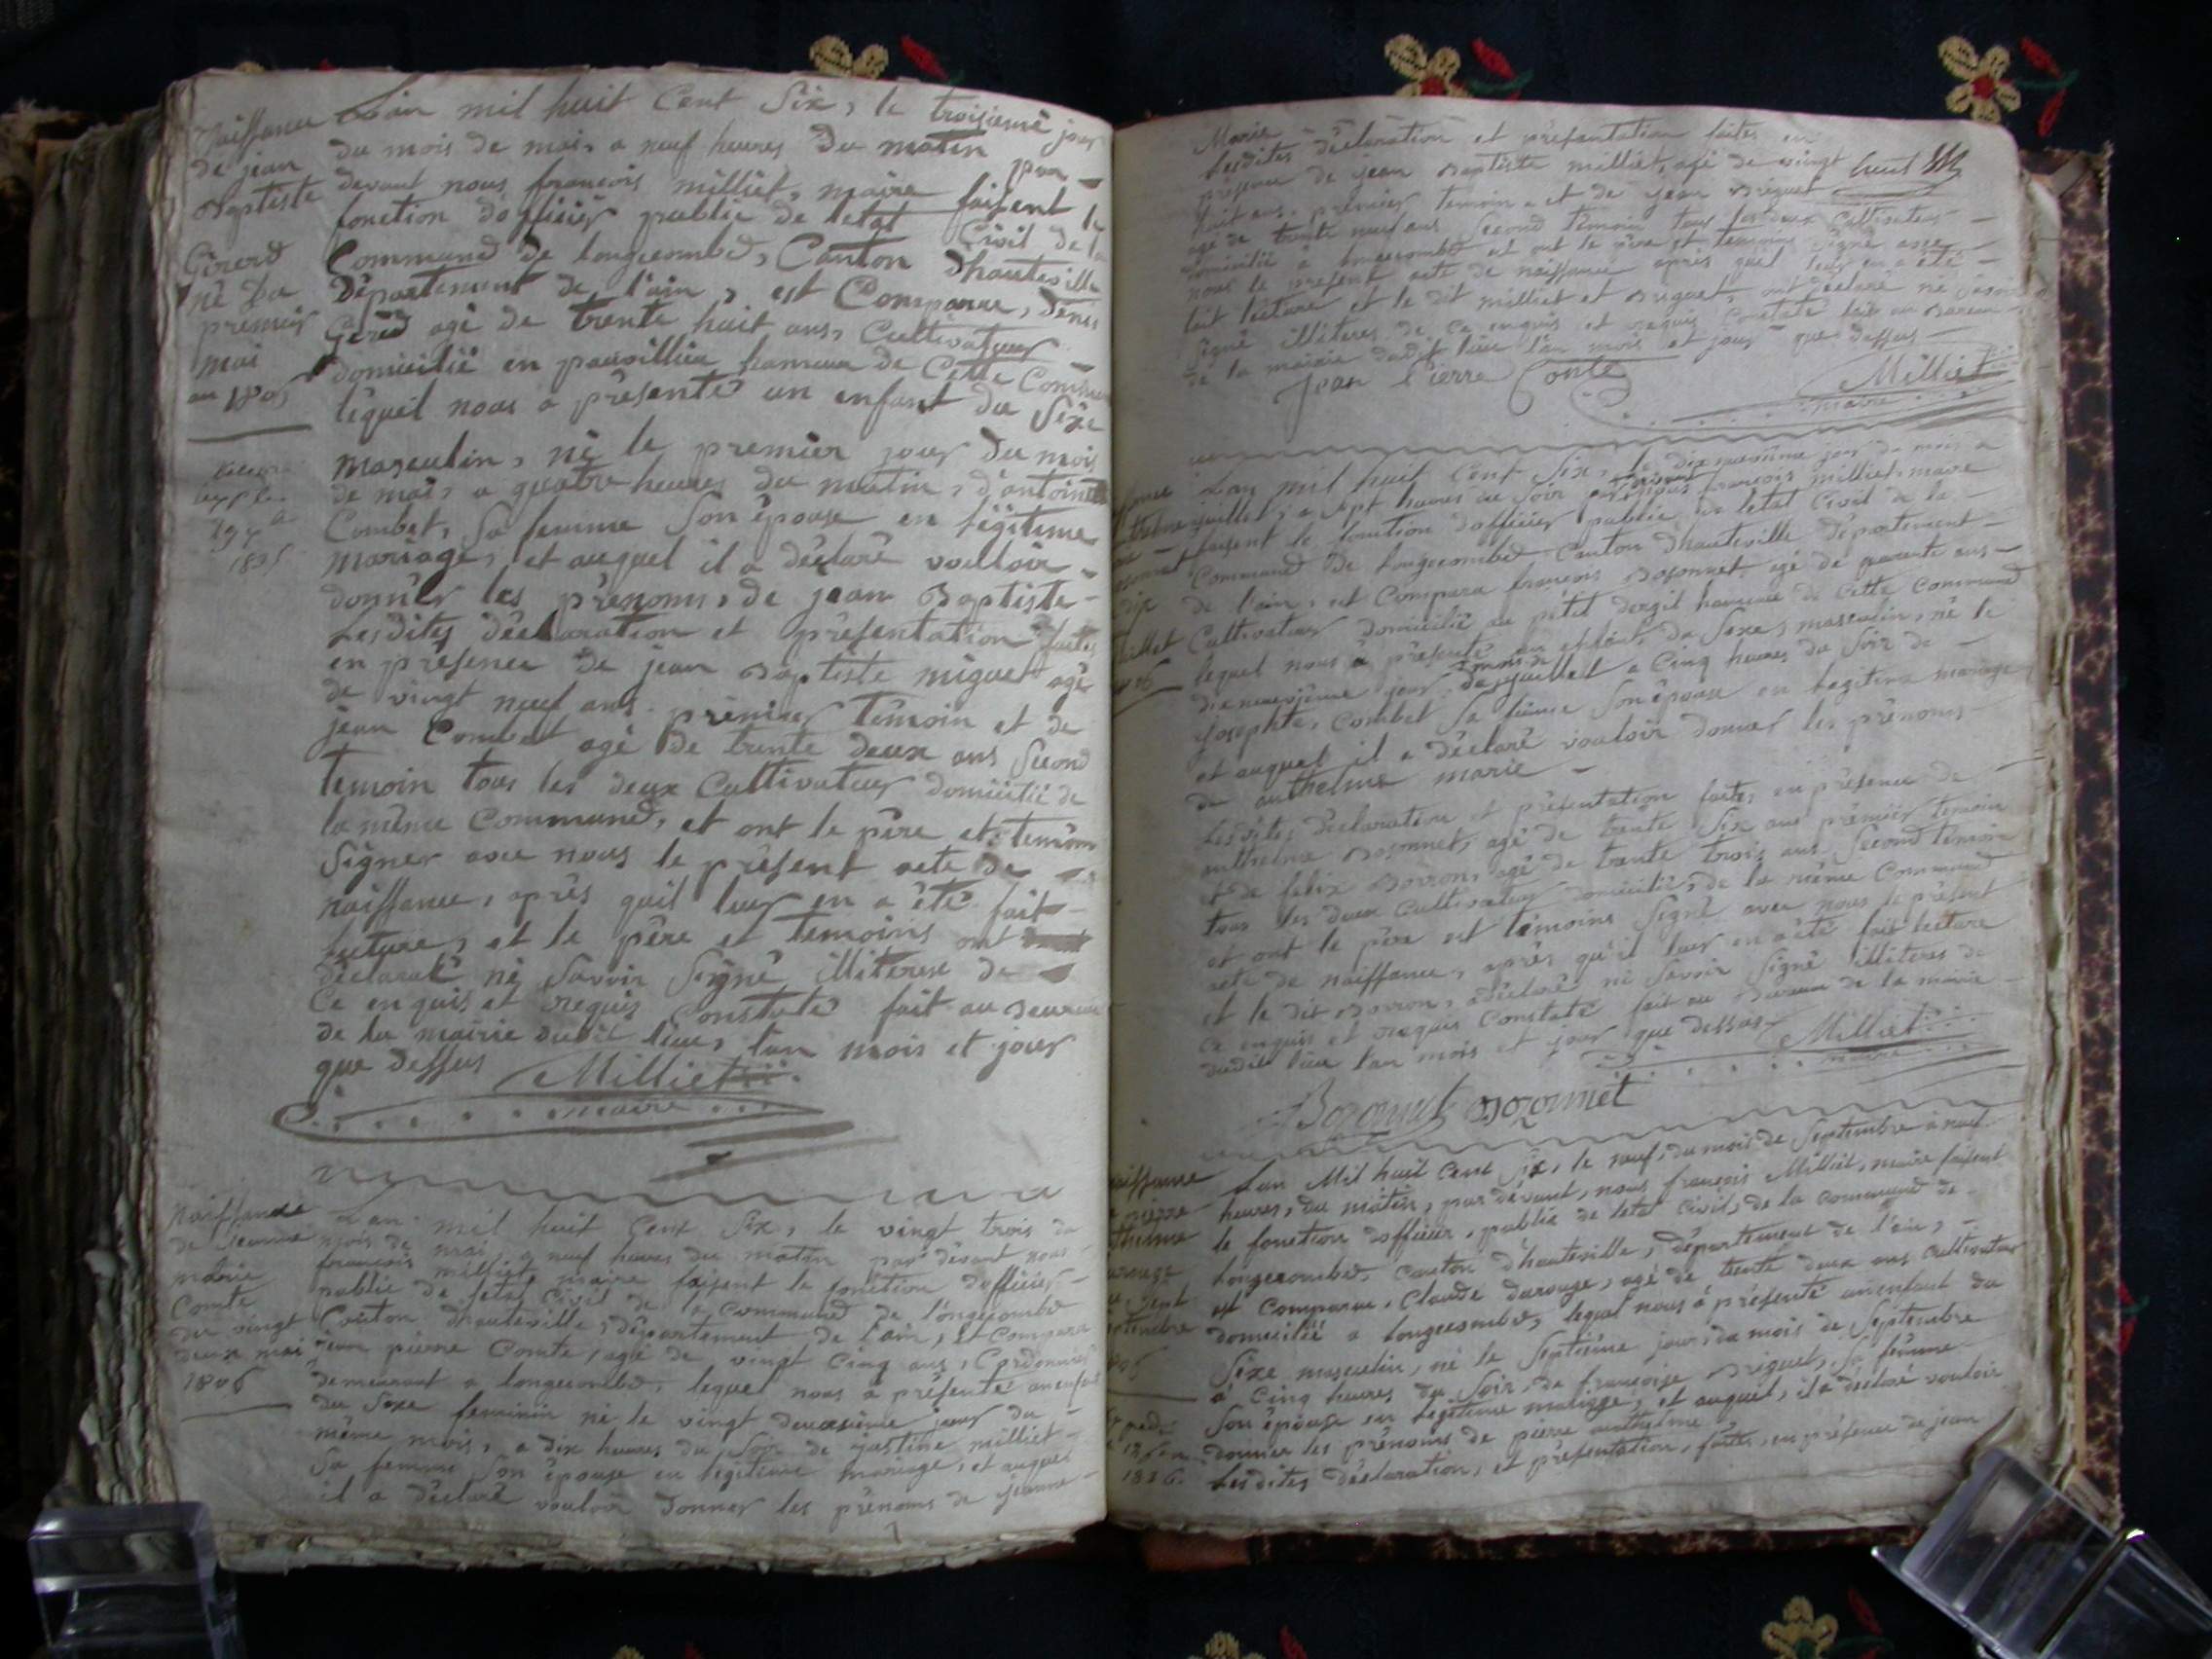 Naissance
de jean
Baptiste
Gererd
né du
premier
mai
an 1806
1835
L'an mil huit Cent Six, le troisieme jour
du mois de mai, a neuf heures du matin par
devant nous françois milliet, maire faisent la
fonction d'officier public de letat Civil de la
Commune de longecombe, Canton dhauteville
département de l'ain, est Comparue, denis
Gererd agé de trente huit ans, Cultivateur
domicilié en pouvillieu hameau de Cette Commune
lequel nous a présenté un enfant du Sèxe
masculin, né le premier jour du mois
de mai, a quatre heures du matin, d'antoinette
Combet, Sa femme Son épouse en légitime
mariage, et auquel il a déclaré vouloir
donner les prénoms, de jean Baptiste
Lesdites déclaration et présentation faites
en présence de jean Baptiste miguet agé
de vingt neuf ans, prémier temoin et de
jean Combet agé de trente deux ans Second
temoin tous les deux Cultivateur domicilié de
la même Commune, et ont le père et temoin
Signer avec nous le présent acte de
naissance, après quil leur en a été fait
lecture, et le père et temoins ont
déclaralé ne Savoir Signé illiterese de
Ce enquis et requis Constaté fait au Bureau
de la mairie dudit lieu, lan mois et jour
que dessus Milliet
maire
Naissance
de Jeanne
marie
Comte
du vingt
deux mai
1806
L'an mil huit Cent Six, le vingt trois du
mois de mai, a neuf heures du matin par dévant nous
françois milliet maire faisent la fonction dofficier
public de letat Civil de la Commune de longecombe
Canton dhauteville, département de l'ain, est Comparu
jean pierre Comte, agé de vingt Cinq ans, Cordonnier
demeurant a longecombe, lequel nous a présenté un enfant
du Sexe feminin né le vingt deuxsième jour du
même mois, a dix heures du Soir de justine milliet
Sa femme Son épouse en légitime mariage, et auquel
il a déclaré vouloir donner les prénoms de jeanne
Marie
Lesdites déclaration et présentation faites en
présence de jean Baptiste milliet, agé de vingt
huit ans, prémier temoin, et de jean Briguet
agé de trente neuf ans Second témoin tous les deux Cultivateur
domicilié a longecombe et ont le père et temoins Signé avec
nous le présent acte de naissance après quil leur en a été
fait lecture et le dit milliet et Briguet, ont déclaré ne savoir
Signé illiteres de Ce enquis et requis Constaté fait au Bureau
de la mairie dudit lieu l'an mois et jour que dessus
Jean Pierre Comte Milliet
maire
L'an mil huit Cent Six, le dix neuvième jour du mois
juillet, a sept heures du Soir par devant nous françois milliet, maire
faisent la fonction dofficier public de letat Civil de la
Commune de longecombe Canton dhauteville département
de l'ain, est Comparu françois Bosonnet agé de quarante ans
Cultivateur domicilié au pétit dergil hameau de Cette Commune
lequel nous a présenté un enfant, du Sexe, masculin, né le
dix neuvième jour du mois de juillet a Cinq heures du Soir de
josephte, Combet Sa fémme Son épouse en légitime mariage
et auquel il a déclaré vouloir donner les prénoms
de anthelme marie
Lesdites déclaration et présentation faites en présence de
anthelme Bosonnet, agé de trente Six ans prémier temoin
et de felix Borron, agé de trente trois ans Second temoin
tous les deux Cultivateur domicilié, de la même Commune
et ont le père est témoins Signé avec nous le présent
acte de naissance, après qu'il leur en a été fait lecture
et le dit Borron, adéclaré ne Savoir Signé illiteres de
Ce enquis et requis Constaté fait au Bureau de la mairie
dudit lieu lan mois et jour que dessus Milliet
maire
Bozonnet Bozonnet
naissance
pierre
anthelme
darouge
sept
septembre
1806
1826
L'an Mil huit Cent Six, le neuf, du mois de Septembre a neuf
heures, du matin, par dévant, nous françois Milliet, maire faisent
la fonction dofficier, public de letat Civil, de la Commune de
longecombe, Canton d'hauteville, département de l'ain,
est Comparue, Claude darouge, agé de trente deux ans Cultivateur
domicilié a longecombe, lequel nous à présenté un enfant du
Sexe masculin, né le Septième jour, du mois de Septembre
à Cinq heures du Soir, de françoise Briguet, Sa fémme
Son épouse en légitime mariage, et auquel, il a déclaré vouloir
donner les prénoms de pierre anthelme
Lesdites déclaration, et présentation, faites, en présence de jean